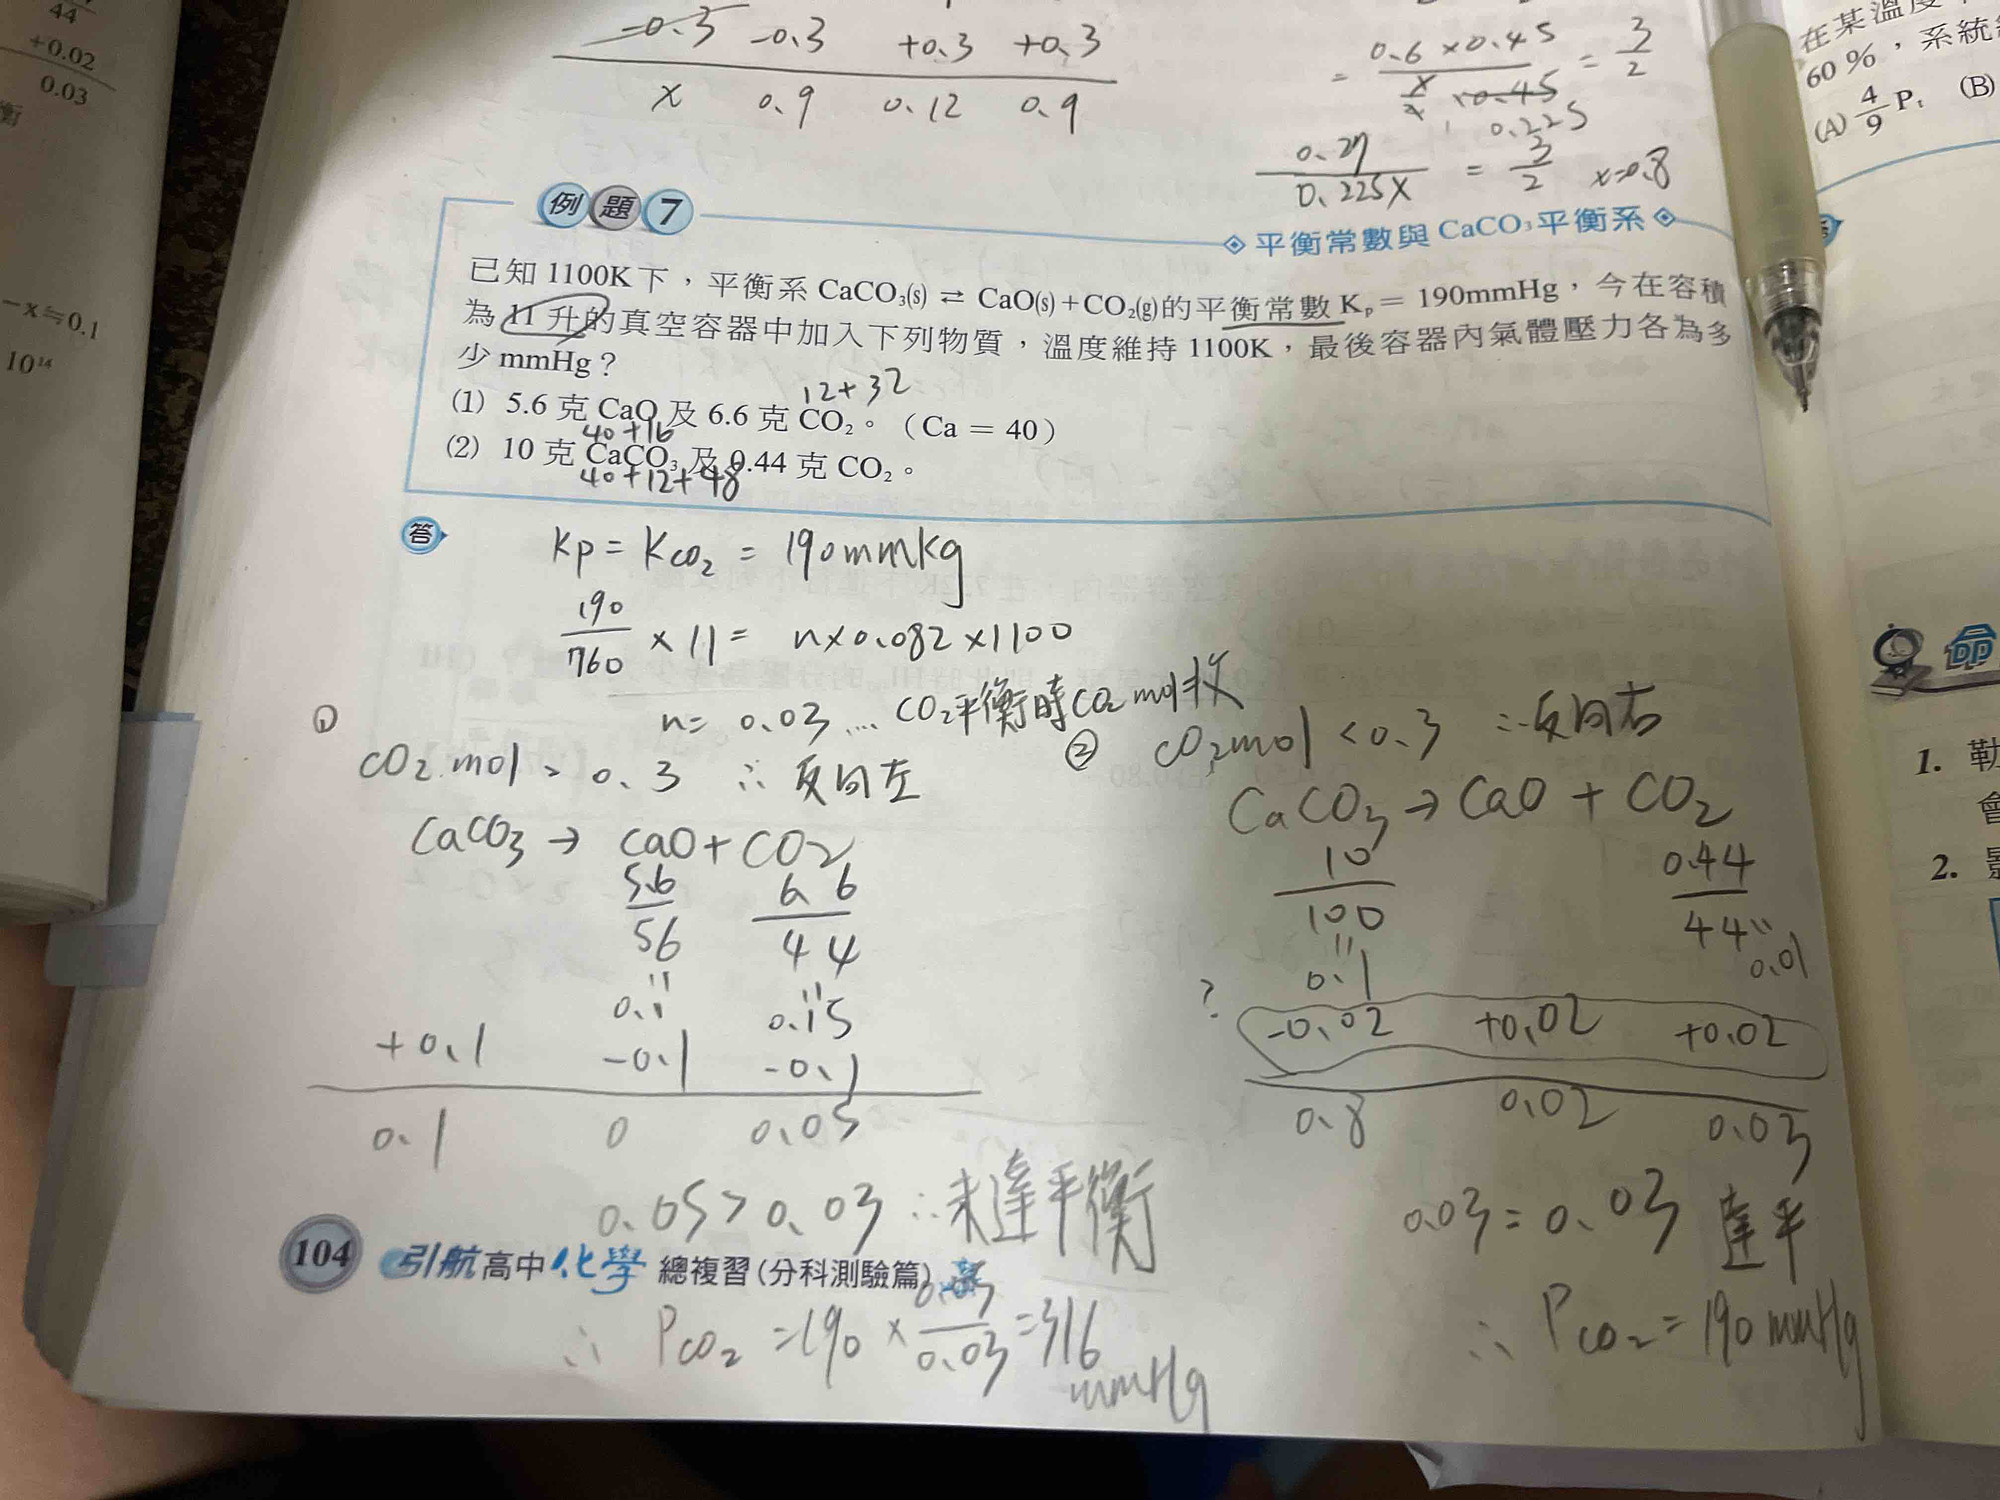 44
+0.02
0.03
衡
-x≒0.1
10¹⁴
-0.3 -0.3 +0.3 +0.3
x 0.9 0.12 0.9
= 0.6×0.45 / = 3/2
0.225
0.27 / 0.225x = 3/2 x=0.8
在某溫度
60%，系統
(A) 4/9 Pₜ (B)
例題7
◇平衡常數與CaCO₃平衡系◇
已知1100K下，平衡系 CaCO₃(s) ⇄ CaO(s)+CO₂(g)的平衡常數Kₚ＝190mmHg，今在容積
為11升的真空容器中加入下列物質，溫度維持1100K，最後容器內氣體壓力各為多
少mmHg？
12+32
(1) 5.6克CaO及6.6克CO₂。（Ca＝40）
40+16
(2) 10克CaCO₃及0.44克CO₂。
40+12+48
答
Kp = Kco₂ = 190mmkg
190/760 × 11 = n×0.082×1100
n= 0.03 … CO₂平衡時CO₂ mol数
①
CO₂ mol > 0.3 ∴反向左
CaCO₃ → CaO + CO₂
5.6/56 6.6/44
0.1 0.15
+0.1 -0.1 -0.1
0.1 0 0.05
0.05 > 0.03 ∴未達平衡
∴ Pco₂ = 190 × 0.05/0.03 = 316
mmHg
② CO₂ mol < 0.3 ∴反向右
CaCO₃ → CaO + CO₂
10/100 0.44/44
0.1 0.01
? -0.02 +0.02 +0.02
0.8 0.02 0.03
0.03 = 0.03 達平
∴ Pco₂ = 190 mmHg
104 引航高中化學 總複習(分科測驗篇)
命
1. 勒
會
2. 影